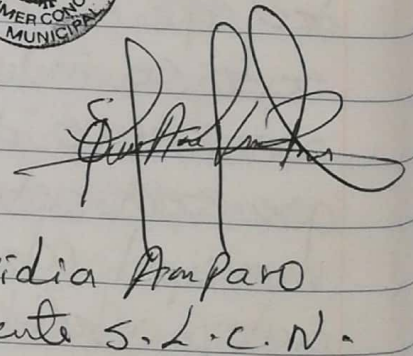 MER CONC
MUNICIPAL
idia Amparo
ente S.L.C.N.